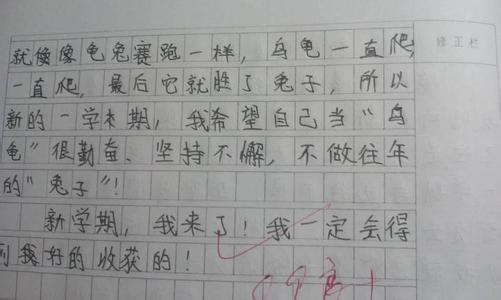 修正栏
就像像龟兔赛跑一样，乌龟一直爬，
一直爬，最后它就胜了兔子，所以
新的一学期，我希望自己当“乌
龟”很勤奋、坚持不懈，不做往年
的“兔子”！
新学期，我来了！我一定会得
到我好的收获的！